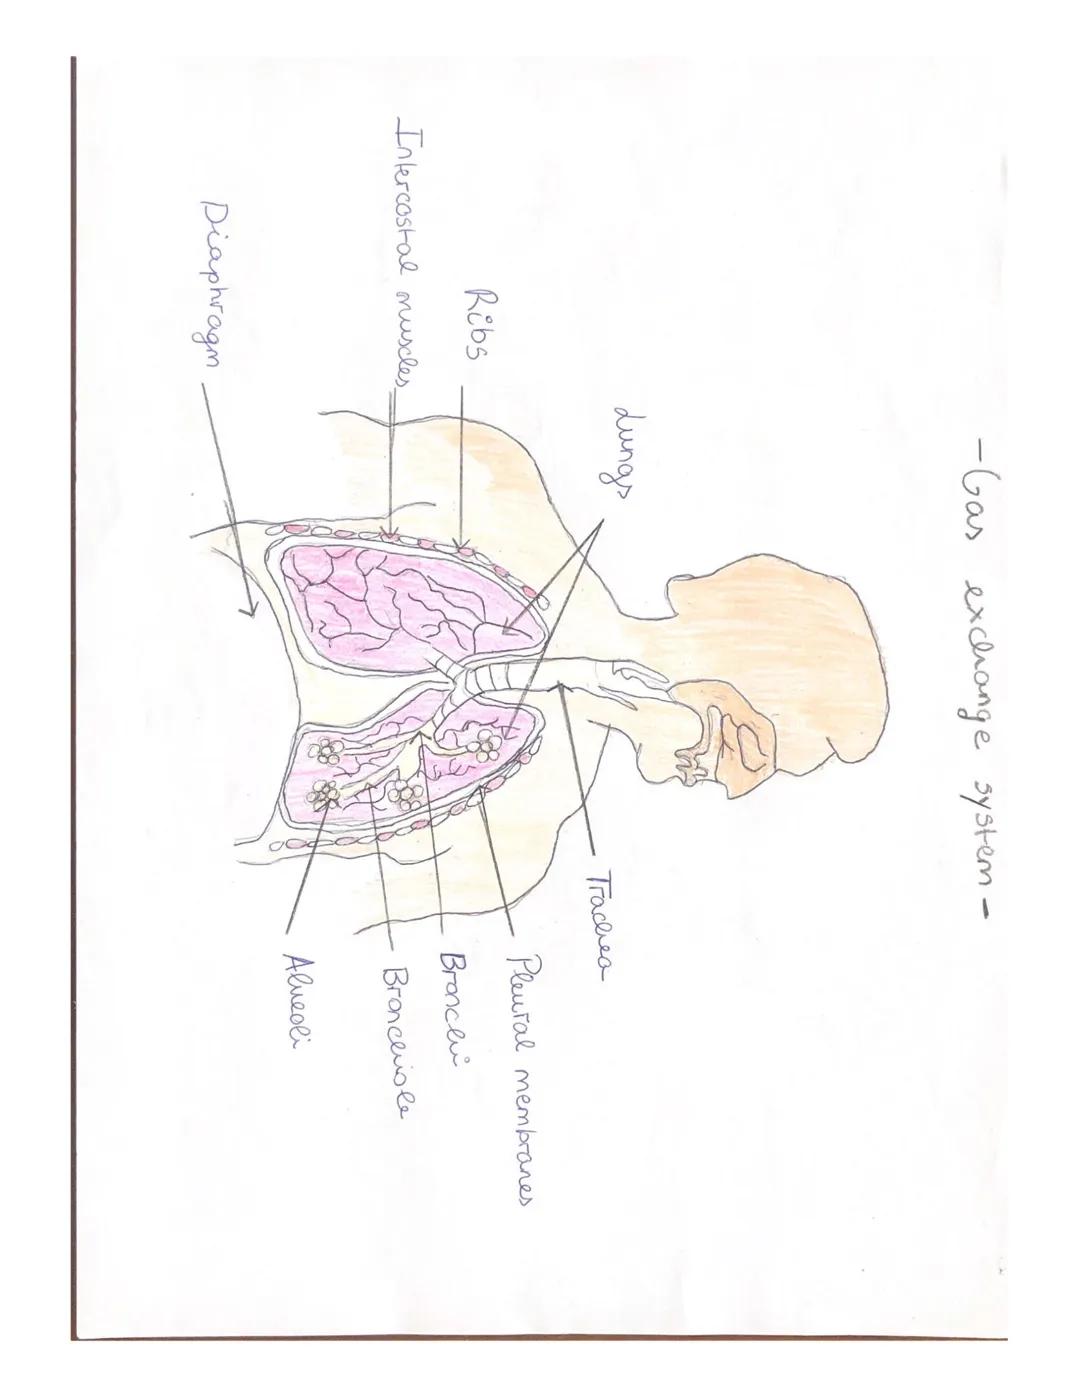 - Gas exchange system -
Lungs
Trachea
Ribs
Pleural membranes
Intercostal muscles
Bronchi
Bronchiole
Diaphragm
Alveoli